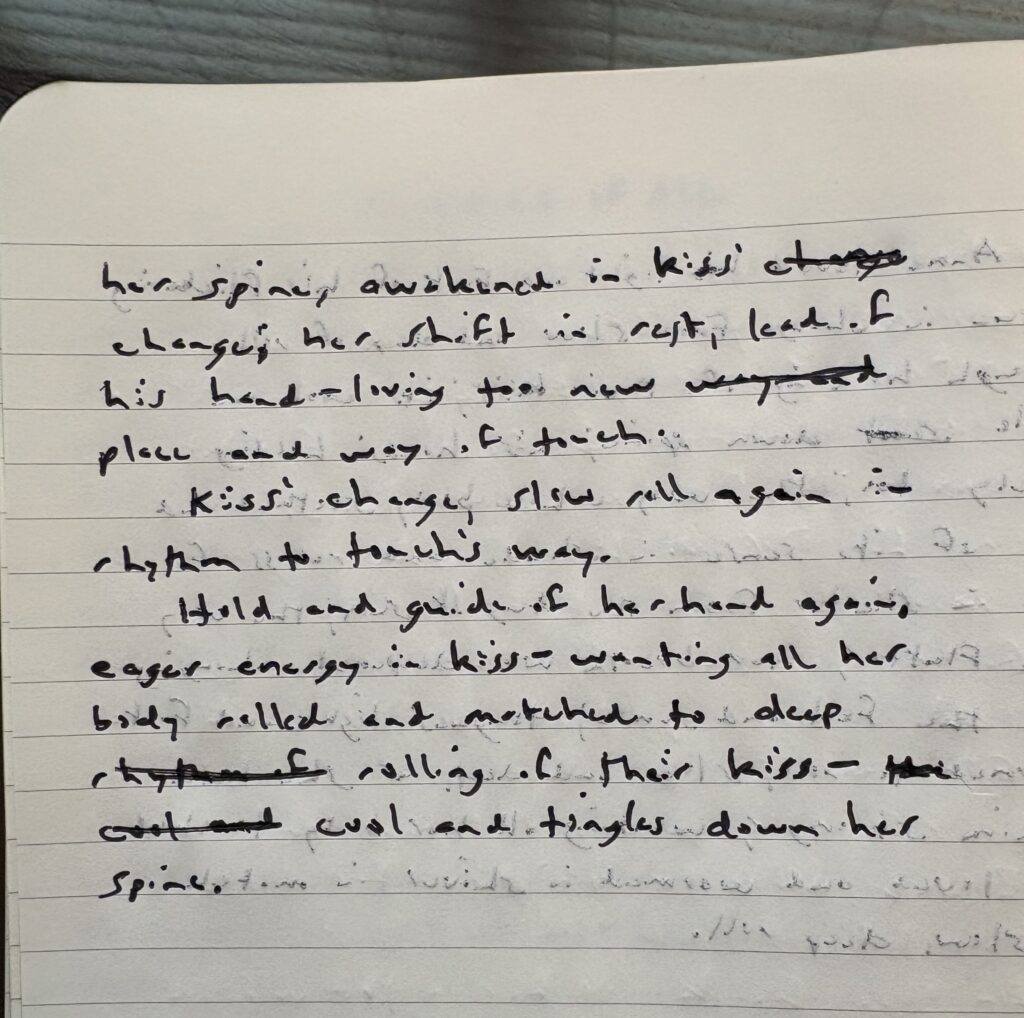 her spine, awakened in kiss' change
change; her shift in rest, lead of
his hand-loving too new way and
place and way of touch.
Kiss' change, slow roll again in
rhythm to touch's way.
Hold and guide of her head again,
eager energy in kiss- wanting all her
body rolled and matched to deep
rhythm of rolling of their kiss-
cool and cool and tingles down her
spine.